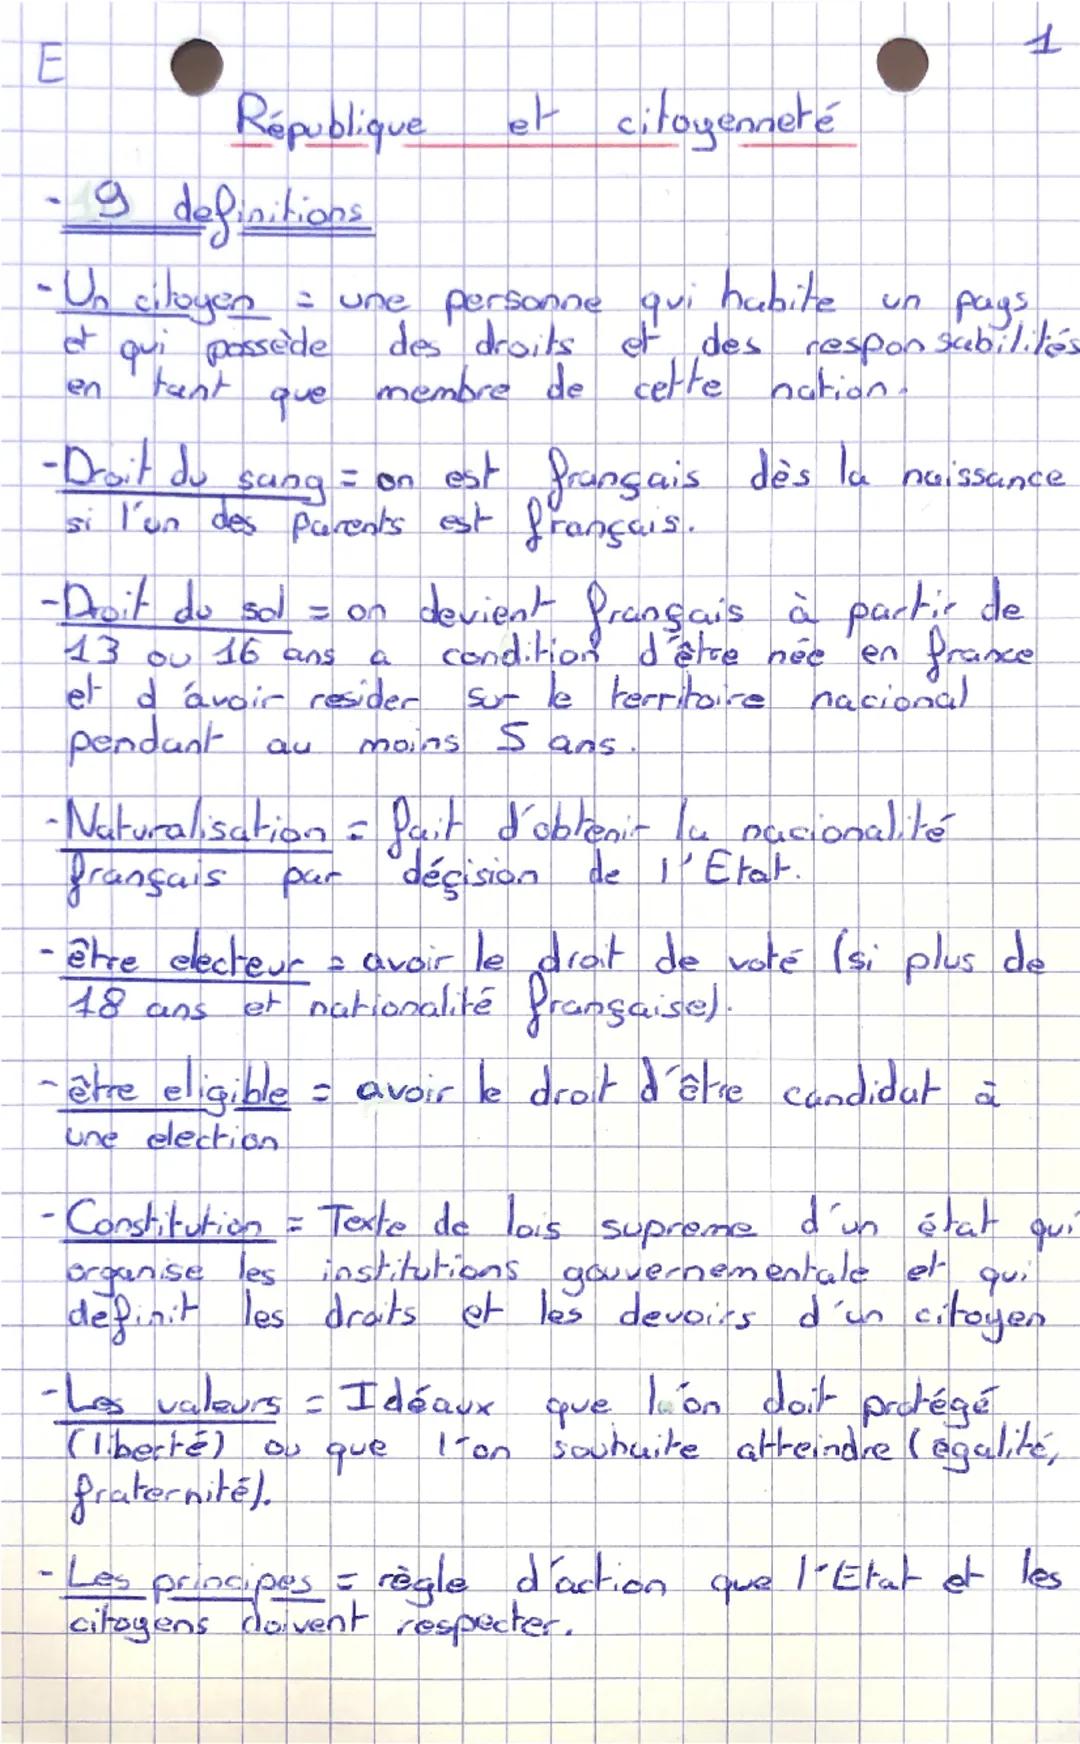 E
1
République et citoyenneté
- 9 definitions
- Un citoyen = une personne qui habite un pays
et qui possède des droits et des responsabilités
en tant que membre de cette nation.
- Droit du sang = on est français dès la naissance
si l'un des parents est français.
- Droit du sol = on devient français à partir de
13 ou 16 ans a condition d'être née en france
et d'avoir resider sur le territoire nacional
pendant au moins 5 ans.
- Naturalisation = fait d'obtenir la nacionalité
français par déçision de l'Etat.
- être electeur = avoir le droit de voté (si plus de
18 ans et nationalité française).
- être eligible = avoir le droit d'être candidat à
une election
- Constitution = Texte de lois supreme d'un état qui
organise les institutions gouvernementale et qui
definit les droits et les devoirs d'un citoyen
- Les valeurs = Idéaux que l'on doit protégé
(liberté) ou que l'on souhaite atteindre (égalité,
fraternité).
- Les principes = règle d'action que l'Etat et les
citoyens doivent respecter.